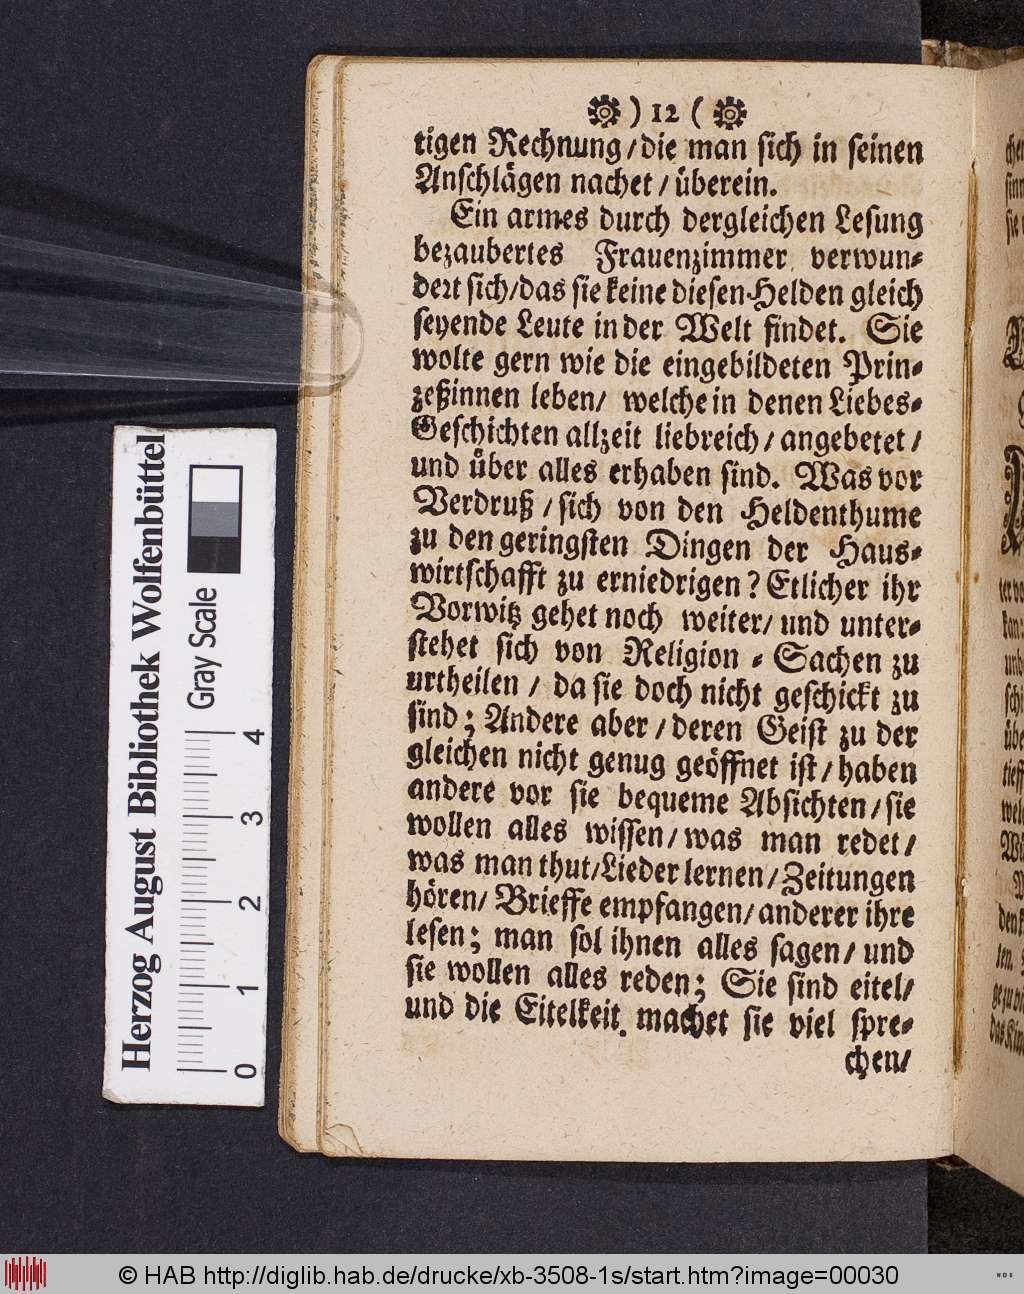 ) 12 (
tigen Rechnung/die man sich in seinen
Anschlägen nachet/ überein.
Ein armes durch dergleichen Lesung
bezaubertes Frauenzimmer verwun-
dert sich/das sie keine diesen Helden gleich
seyende Leute in der Welt findet. Sie
wolte gern wie die eingebildeten Prin-
zeßinnen leben/ welche in denen Liebes-
Geschichten allzeit liebreich/ angebetet/
und über alles erhaben sind. Was vor
Verdruß/ sich von den Heldenthume
zu den geringsten Dingen der Haus-
wirtschafft zu erniedrigen? Etlicher ihr
Vorwitz gehet noch weiter/ und unter-
stehet sich von Religion-Sachen zu
urtheilen/ da sie doch nicht geschickt zu
sind; Andere aber/ deren Geist zu der
gleichen nicht genug geöffnet ist/ haben
andere vor sie bequeme Absichten/ sie
wollen alles wissen/ was man redet/
was man thut/Lieder lernen/ Zeitungen
hören/ Brieffe empfangen/ anderer ihre
lesen; man sol ihnen alles sagen/ und
sie wollen alles reden; Sie sind eitel/
und die Eitelkeit machet sie viel spre-
chen/
Herzog August Bibliothek Wolfenbüttel
Gray Scale
0 1 2 3 4
© HAB http://diglib.hab.de/drucke/xb-3508-1s/start.htm?image=00030